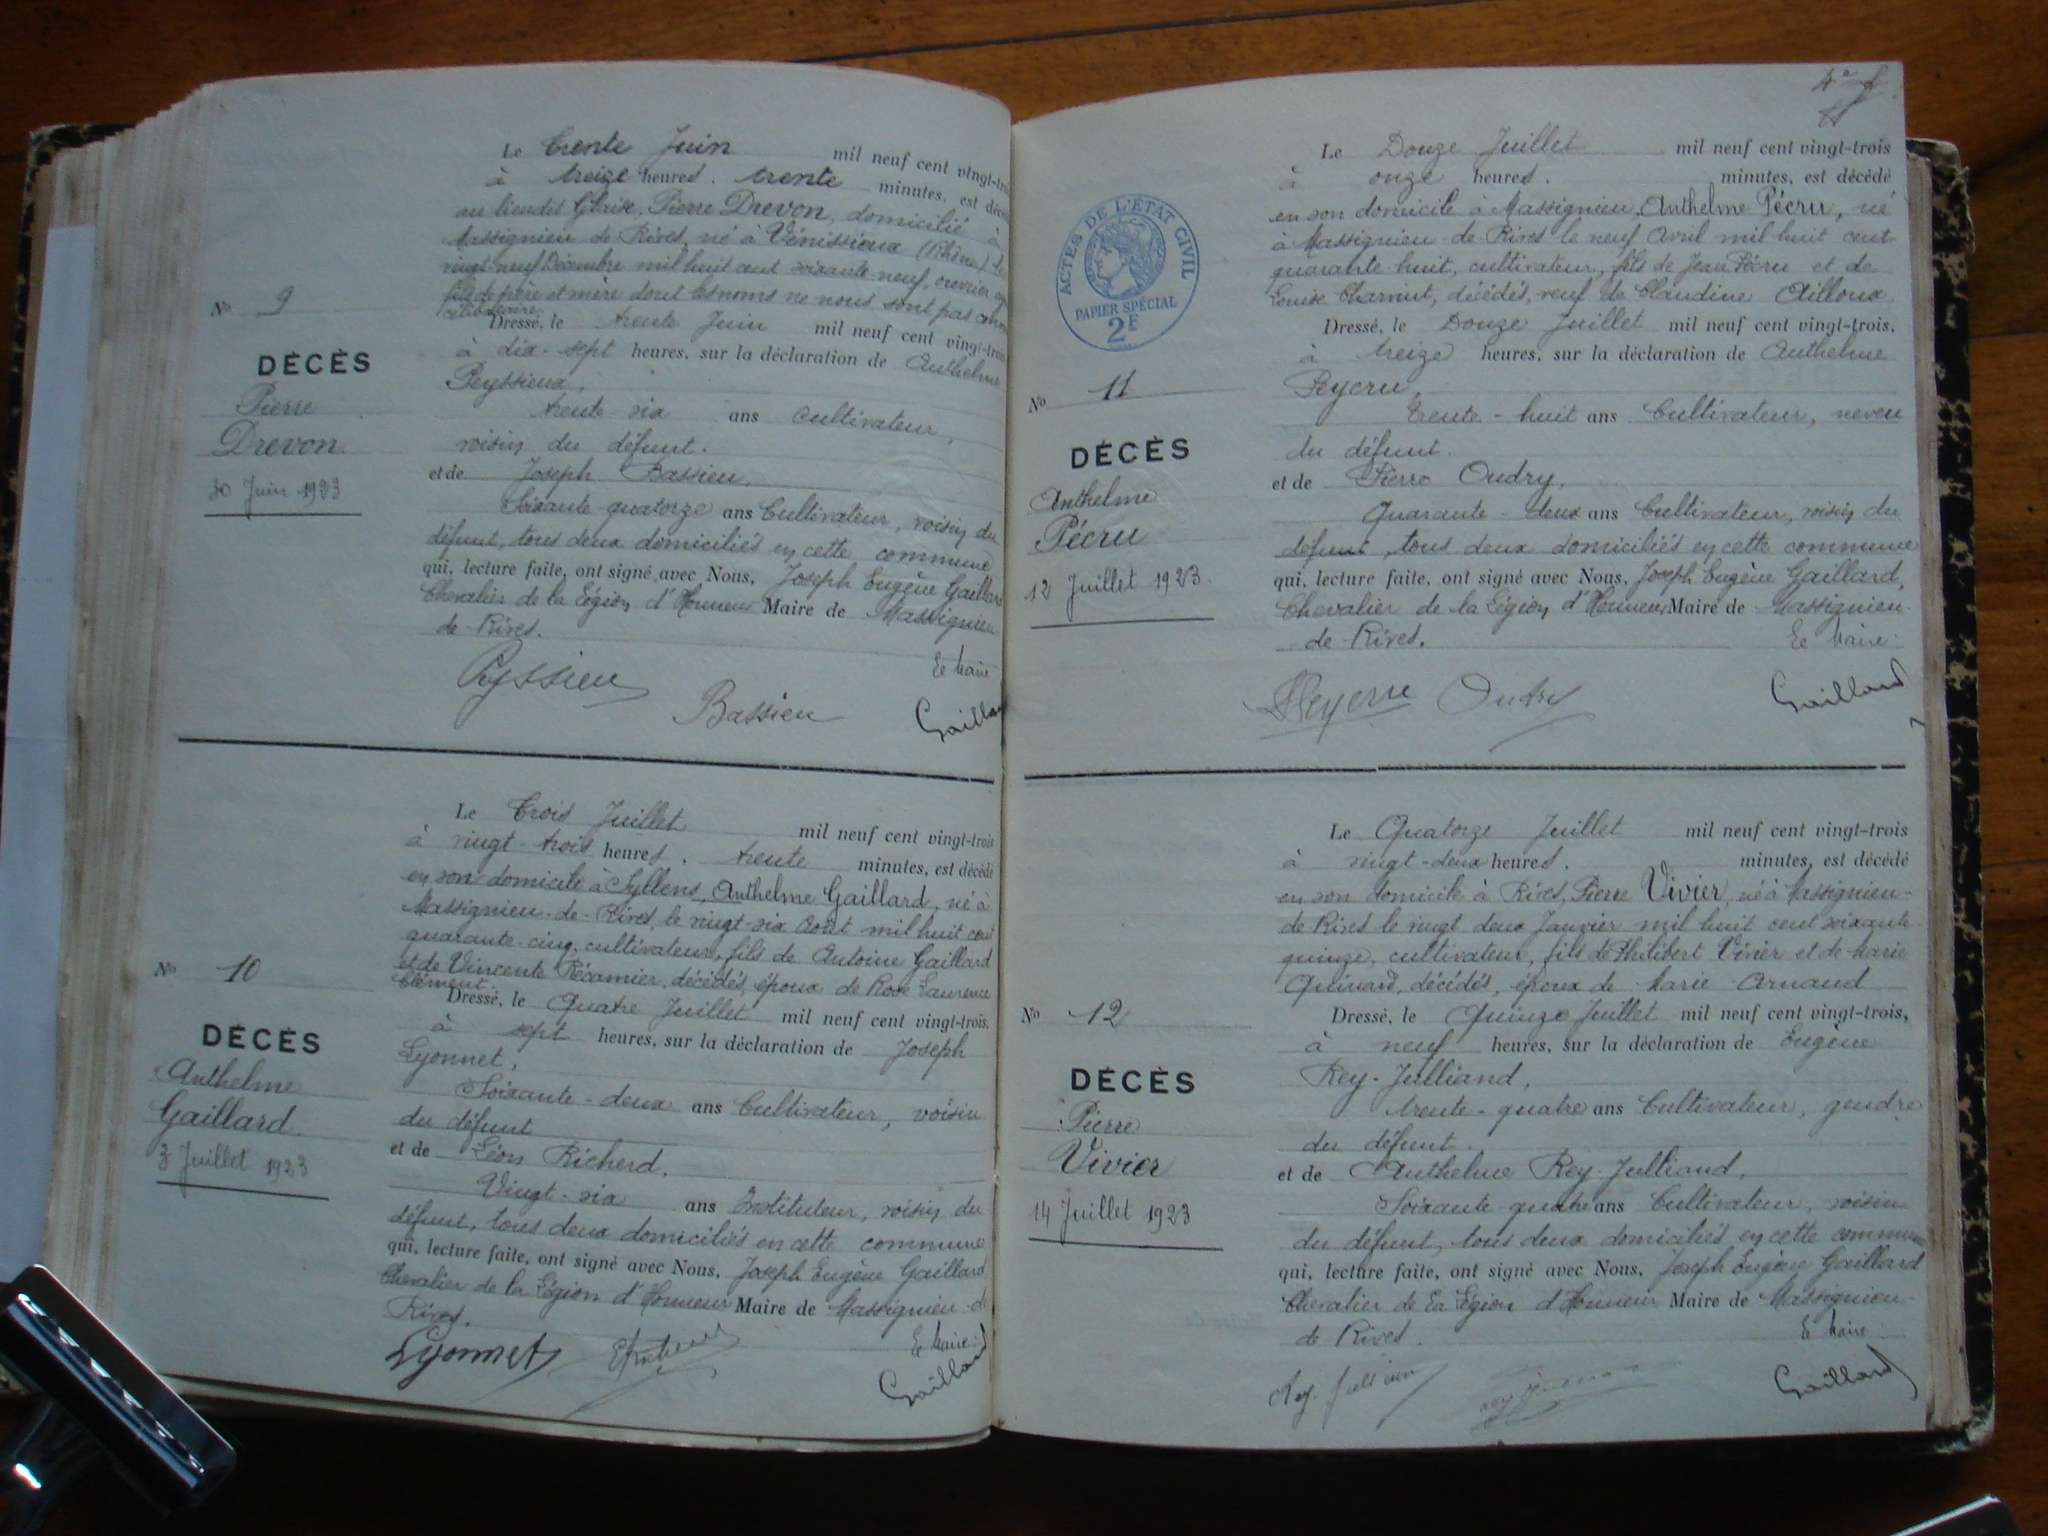 Le Trente Juin mil neuf cent vingt-trois
à treize heures. trente minutes, est décédé
au lieudit Glaise, Pierre Drevon, domicilié à
Massignieu de Rives, né à Vénissieux (Rhône) le
vingt-neuf Décembre mil huit cent soixante-neuf, ouvrier
fils de père et mère dont les noms ne nous sont pas connus
célibataire.
Nº 9
DÉCÈS
Pierre
Drevon
30 Juin 1923
Dressé, le trente Juin mil neuf cent vingt-trois
à dix-sept heures, sur la déclaration de Anthelme
Peyssieux,
trente-six ans cultivateur,
voisin du défunt.
et de Joseph Bassieu,
Soixante-quatorze ans Cultivateur, voisin du
défunt, tous deux domiciliés en cette commune
qui, lecture faite, ont signé avec Nous, Joseph Eugène Gaillard
Chevalier de la Légion d'Honneur Maire de Massignieu
de-Rives.
Le Maire
Peyssieu Bassieu Gaillard
Le Trois Juillet mil neuf cent vingt-trois
à vingt-trois heures. trente minutes, est décédé
en son domicile à Syllens, Anthelme Gaillard, né à
Massignieu-de-Rives, le vingt-six Août mil huit cent
quarante-cinq, cultivateur, fils de Antoine Gaillard
et de Vincente Récamier, décédés, époux de Rose Laurence
Clément.
Nº 10
DÉCÈS
Anthelme
Gaillard.
3 Juillet 1923
Dressé, le Quatre Juillet mil neuf cent vingt-trois,
à sept heures, sur la déclaration de Joseph
Lyonnet,
Soixante-deux ans Cultivateur, voisin
du défunt
et de Léon Richerd,
Vingt-six ans Instituteur, voisin du
défunt, tous deux domiciliés en cette commune
qui, lecture faite, ont signé avec Nous, Joseph Eugène Gaillard
Chevalier de la Légion d'Honneur Maire de Massignieu-de
Rives.
Le Maire:
Lyonnet Gaillard
Le Douze Juillet mil neuf cent vingt-trois
à onze heures. minutes, est décédé
en son domicile à Massignieu, Anthelme Pécru, né
à Massignieu-de-Rives le neuf Avril mil huit cent
quarante-huit, cultivateur, fils de Jean Pécru et de
Louise Charvint, décédés, veuf de Claudine Ailloux
ACTES DE L'ÉTAT CIVIL
PAPIER SPÉCIAL
2F
Nº 11
DÉCÈS
Anthelme
Pécru
12 Juillet 1923.
Dressé, le Douze Juillet mil neuf cent vingt-trois,
à treize heures, sur la déclaration de Anthelme
Peycru,
trente-huit ans Cultivateur, neveu
du défunt.
et de Pierre Oudry,
Quarante-deux ans Cultivateur, voisin du
défunt, tous deux domiciliés en cette commune
qui, lecture faite, ont signé avec Nous, Joseph Eugène Gaillard,
Chevalier de la Légion d'Honneur Maire de Massignieu-
de-Rives.
Le Maire:
Peycru Oudry Gaillard
Le Quatorze Juillet mil neuf cent vingt-trois
à vingt-deux heures. minutes, est décédé
en son domicile à Rives, Pierre Vivier, né à Massignieu-
de Rives le vingt deux Janvier mil huit cent soixante-
quinze, cultivateur, fils de Philibert Vivier et de Marie
Quinard, décédés, époux de Marie Arnaud
Nº 12
DÉCÈS
Pierre
Vivier
14 Juillet 1923
Dressé, le Quinze Juillet mil neuf cent vingt-trois,
à neuf heures, sur la déclaration de Eugène
Rey-Julliand,
trente-quatre ans Cultivateur, gendre
du défunt.
et de Anthelme Rey-Julliand,
Soixante-quatre ans Cultivateur, voisin
du défunt, tous deux domiciliés en cette commune
qui, lecture faite, ont signé avec Nous, Joseph Eugène Gaillard
Chevalier de La Légion d'Honneur Maire de Massignieu-
de Rives.
Le Maire:
Rey-Julliand Gaillard